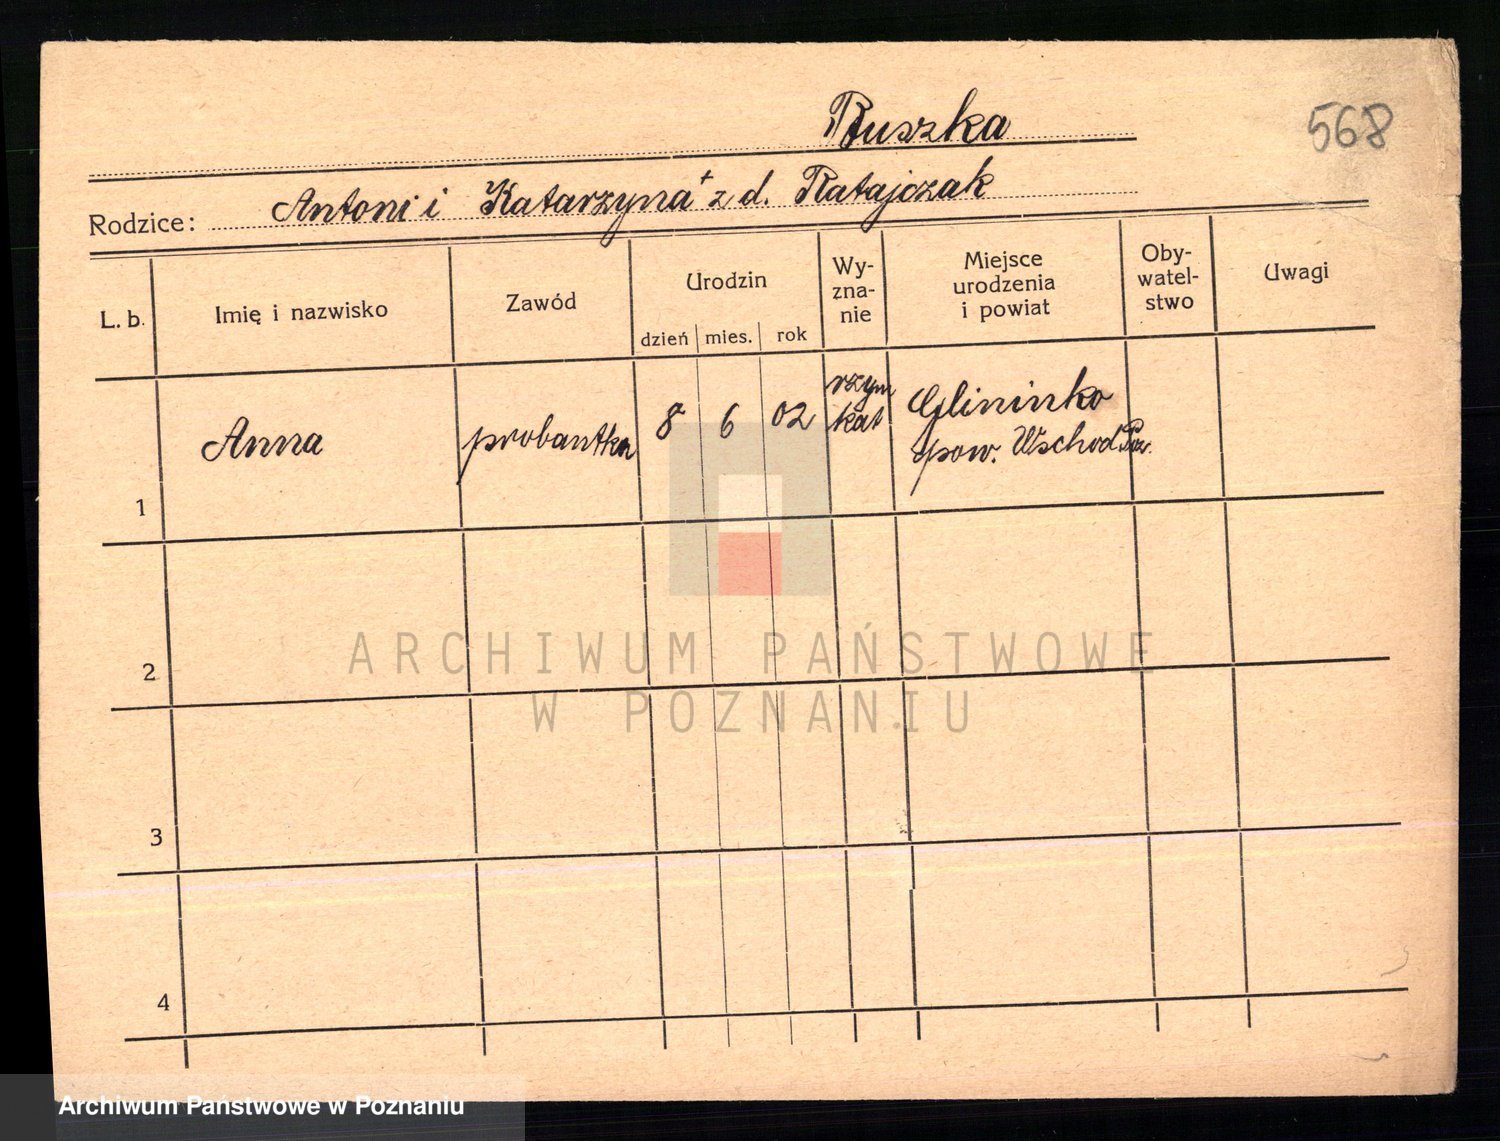 Ruszka
568
Rodzice: Antoni i Katarzyna + z d. Ratajczak
L. b. Imię i nazwisko Zawód Urodzin dzień mies. rok Wy-zna-nie Miejsce urodzenia i powiat Oby-watel-stwo Uwagi
1 Anna probantka 8 6 02 rzym kat Glininko pow. Wschod. Poz.
2
3
4
ARCHIWUM PAŃSTWOWE
W POZNANIU
Archiwum Państwowe w Poznaniu